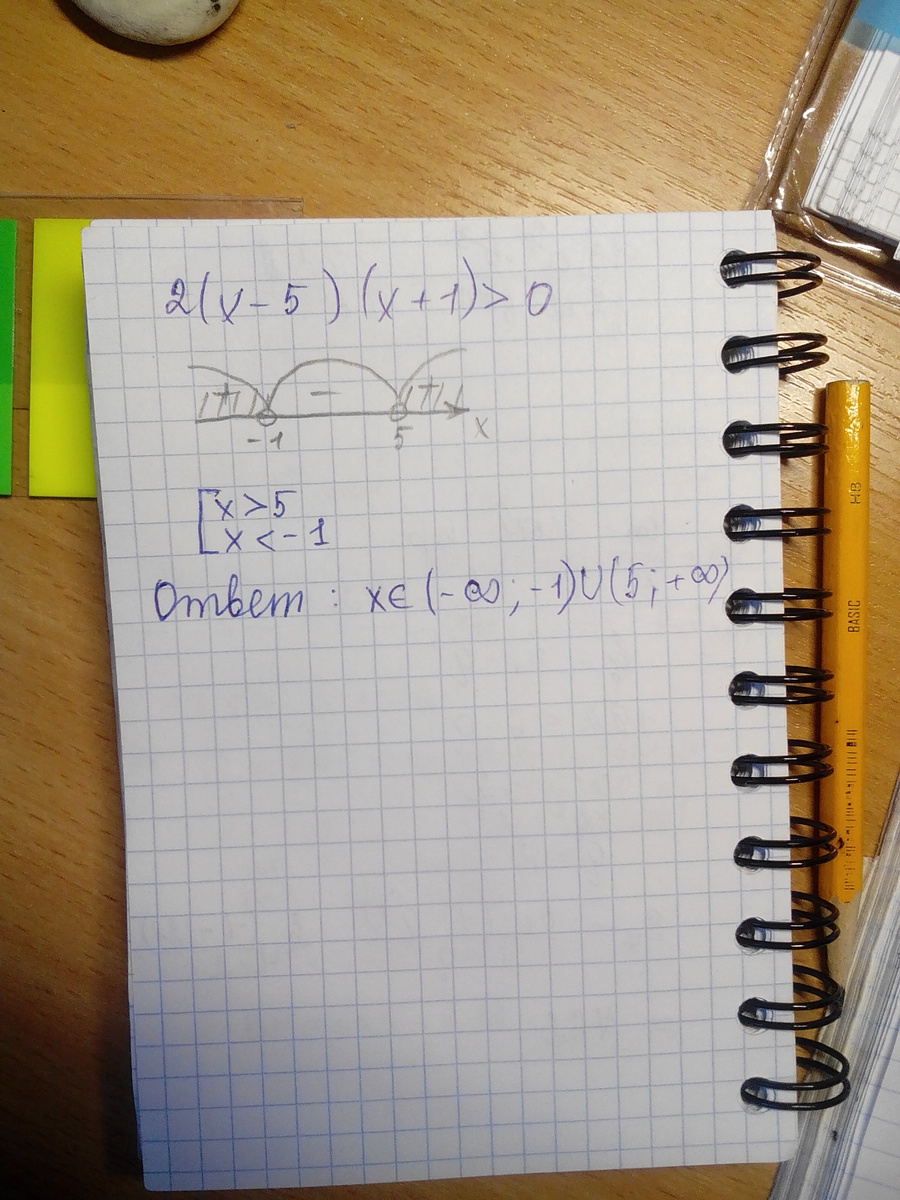 2(x-5)(x+1)>0
+ - +
-1 5 x
x>5
x<-1
Ответ: x∈(-∞;-1)∪(5;+∞)
HB
BASIC